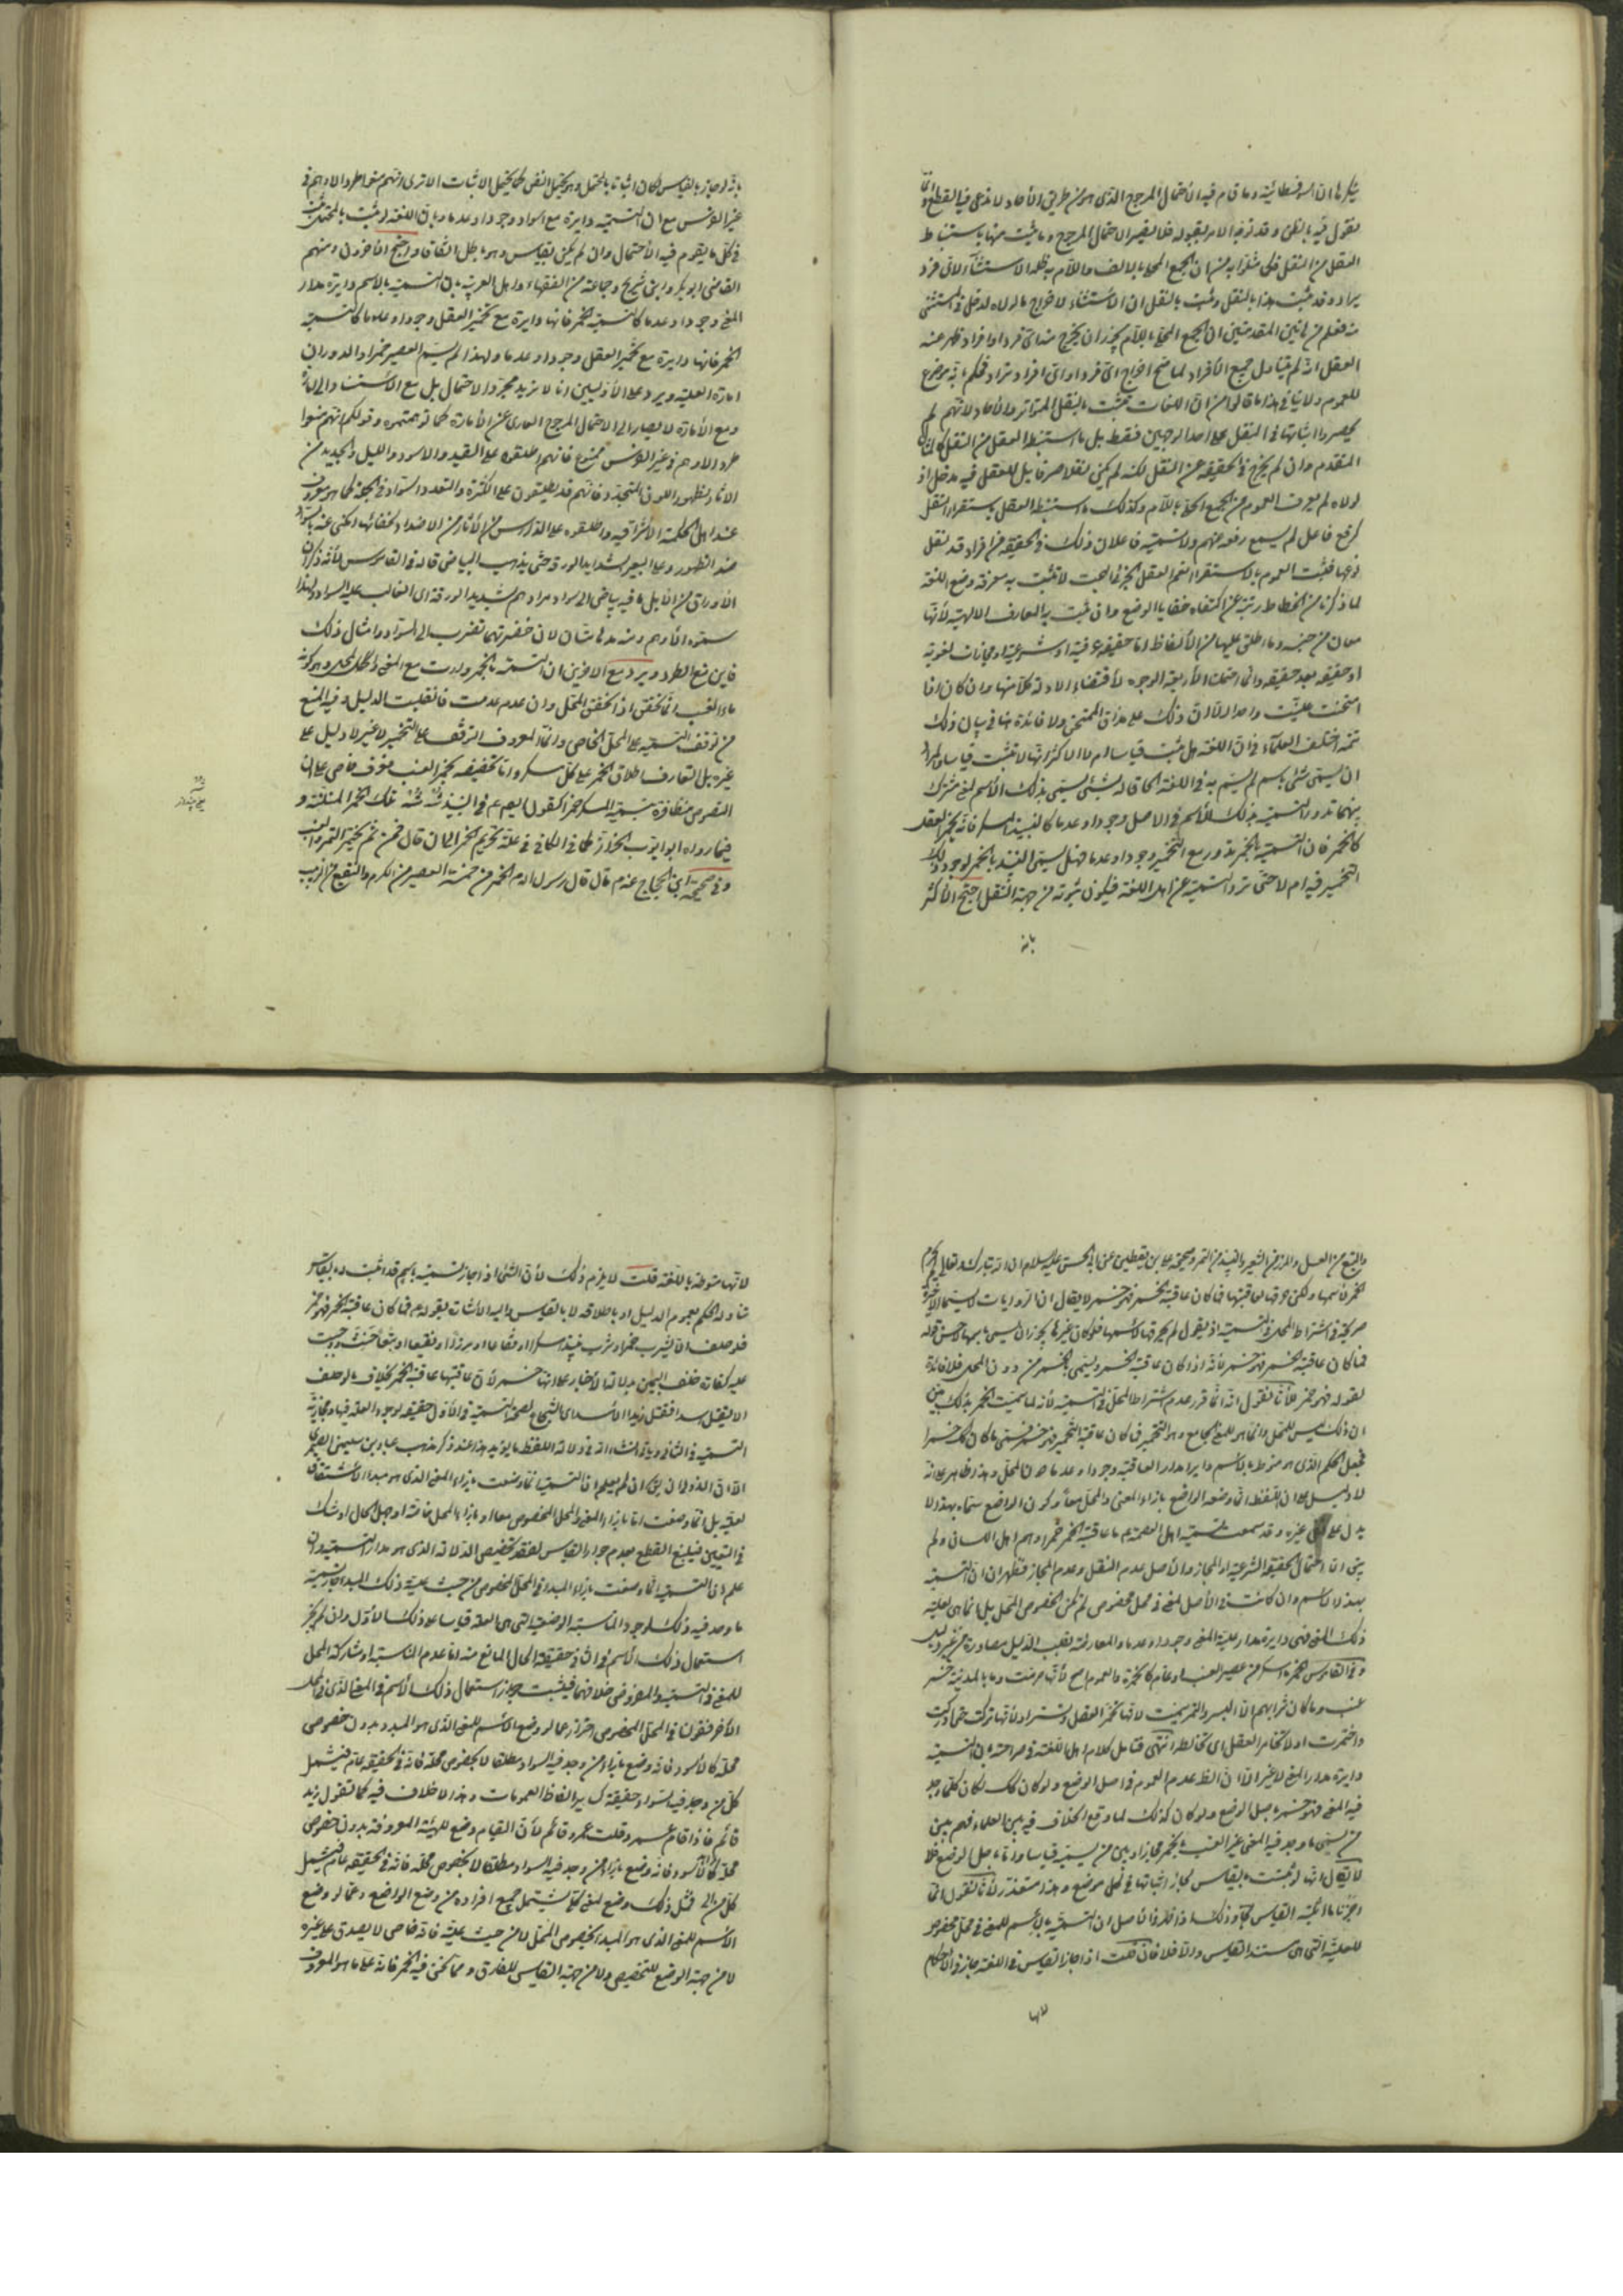 ينكرها ان السوفسطائية وما قام فيه الاحتمال المرجوح الذى هو من طريق الآحاد لا ندعى فيه القطع وانما
نقول فيه بالظن وقد توجه الامر بقبوله فلا يضر الاحتمال المرجوح وما يثبت منها باستنباط
العقل من النقل فكما مثلوا به من ان الجمع المحلى بالالف واللام يدخله الاستثناء لاى فرد
يراد وقد ثبت هذا بالنقل وثبت بالنقل ان الاستثناء لاخراج ما لولاه لدخل فى المستثنى
منه فعلم من هاتين المقدمتين ان الجمع المحلى باللام يجوز ان يخرج منه اى فرد او افراد فظهر عند
العقل انه لو لم يتناول جميع الأفراد لما صح اخراج اى فرد او اى افراد تراد فحكم بانه موضوع
للعموم ولا ينافى هذا ما قالوا من ان اللغات تثبت بالنقل المتواتر والآحاد لانهم لم
يحصروا اثباتها فى النقل على احد الوجهين فقط بل ما استنبط العقل من النقل كالمثال
المتقدم وان لم يخرج فى الحقيقة عن النقل لكنه لم يكن نقلا صرفا بل للعقل فيه مدخل اذ
لولاه لم يعرف العموم من الجمع المحلى باللام وكذلك ما استنبط العقل باستقراء النقل
كرفع فاعل لم يسمع رفعه منهم ولا تسميته فاعلا لان ذلك فى الحقيقة من افراد قد نقل
نوعها فثبت العموم بالاستقراء نعم العقل الجزئى البحت لا تثبت به معرفة وضع اللغة
لما ذكرنا من انحطاط رتبته عن اكتناه خفايا الوضع وان ثبت به المعارف الالهية لأنها
معان من جنسه وما اطلق عليها من الألفاظ اما حقيقة عرفية او شرعية او مجازات لغوية
او حقيقة بعد حقيقة وانما احتملت الأربعة الوجوه لاقتضاء الادلة كلا منها وان كان اذا
امتحنت عينت واحدا الا ان ذلك على مذاق الممتحن ولا فائدة هنا فى بيان ذلك
تتمه اختلف العلماء فى ان اللغة هل تثبت قياسا ام لا الاكثر انها لا تثبت قياسا والمراد
ان يسمى شئ باسم لم يسم به فى اللغة الحاقا له بشئ يسمى بذلك الأسم لمعنى مشترك
بينهما تدور التسمية بذلك الأسم فى الاصل وجودا وعدما كالنبيذ المسكر فانه يخمر العقل
كالخمر فان التسمية بالخمر تدور مع التخمير وجودا وعدما فهل يسمى النبيذ بالخمر لوجود ذلك
التخمير فيه ام لا حتى ترد التسمية عن اهل اللغة فيكون ثبوته من جهة النقل احتج الأكثر
بانه
بانه لو جاز بالقياس لكان اثباتا بالمحتمل وهو يحتمل النفى كما يحتمل الاثبات الا ترى انهم منعوا طرد الادهم فى
غير الفرس مع ان التسمية دايرة مع السواد وجودا وعدما وبان اللغة لو ثبت بالمحتمل ثبت
فى كل ما يقوم فيه الاحتمال وان لم يكن بقياس وهو باطل اتفاقا واحتج الآخرون ومنهم
القاضى ابو بكر وابن شريح وجماعة من الفقهاء واهل العربية بان التسمية بالاسم دايرة مدار
المعنى وجودا وعدما كالتسمية بالخمر فانها دايرة مع تخمير العقل وجودا وعدما كالتسمية
الخمر فانها دايرة مع تخمير العقل وجودا وعدما ولهذا لم يسم العصير خمرا والدوران
امارة العلية ويرد على الأوليين انا لا نريد مجرد الاحتمال بل مع الاستناد الى امارة
ومع الأمارة لا يصار الى الاحتمال المرجوح العارى عن الأمارة كما توهمتموه وقولكم انهم منعوا
طرد الادهم فى غير الفرس ممنوع فانهم اطلقوه على القيد والاسود والليل والجديد من
الاثار لظهور اللون المتجدد فانهم قد يطلقون على الكثرة والتعدد السواد فى الجملة كما هو معروف
عند اهل الحكمة الاشراقية واطلقوه على الدارس من الأثار من الاضداد لخفائه المكنى عنه بالسواد
ضد الظهور وعلى البعير الشديد الورقة حتى يذهب البياض قاله فى القاموس لأنه ذكر ان
الأورق من الابل ما فيه بياض الى سواد مرادهم شديد الورقة اى الغالب عليه السواد ولهذا
سموه الأدهم ومنه مدهامتان لان خضرتهما تضرب الى السواد وامثال ذلك
فاين منع الطرد ويرد مع الآخرين ان التسمية بالخمر دارت مع المعنى والمحل المحل وهو كونه
ماء العنب انما تحقق اذا تحقق المحل وان عدم عدمت فانقلب الدليل وفيه المنع
من توقف التسمية على المحل الخاص وانما المعروف التوقف على التخمير لا غير لا دليل على
غيره بل التعارف اطلاق الخمر على كل مسكر وانما تخصيصه بخمر العنب عرف خاص على ان
النصوص متظافرة بتسمية المسكر خمرا كقول ابى عبد الله فى النبيذ شه شه تلك الخمرة المنتنة و
فيما رواه ابو ايوب الخزاز كما فى الكافى فى علة تحريم الخمر الى ان قال فمن ثم يختمر التمر والعنب
وفى صحيحة ابن الحجاج عنه م قال قال رسول الله م الخمر من خمسة العصير من الكرم والنقيع من الزبيب
والبتع من العسل والمزر من الشعير والنبيذ من التمر وصحيحة على بن يقطين عن ابى الحسن عليه السلام ان الله تبارك وتعالى لم يحرم
الخمر لأسمها ولكن حرمها لعاقبتها فما كان عاقبته الخمر فهو خمر لا يقال ان الروايات لا سيما الاخيرة
صريحة فى اشتراط المحل فى التسمية اذ يقول لم يحرمها لأسمها فلو كان غيرها يجوز ان يسمى باسمها لحسن قوله
فما كان عاقبته الخمر فهو خمر لأنه اذا كان عاقبته الخمر ويسمى بالخمر من دون المحل فلا فائدة
لقوله فهو خمر لأنا نقول انه انما قرر عدم اشتراط المحل فى التسمية لأنه لما سميت الخمر بذلك بين
ان ذلك ليس للمحل وانما هو للمعنى الجامع وهو التخمير فما كان عاقبته التخمير فهو خمر فسمى ما كان كك خمرا
فجعل الحكم الذى هو منوط بالأسم دايرا مدار العاقبة وجودا وعدما دون المحل وهذا ظاهر على انه
لا دليل على ان اللفظ انما وضعه الواضع بازاء المعنى والمحل معا وكون الواضع سماه بهذا لا
يدل على نفى غيره وقد سمعت تسمية اهل العصمة م ما عاقبته الخمر خمرا وهم اهل اللسان ولم
يبق الا احتمال الحقيقة الشرعية او المجاز والأصل عدم النقل وعدم المجاز فظهر ان التسمية
بهذا الاسم وان كانت فى الأصل لمعنى فى محل مخصوص لم تكن لخصوص المحل بل انما هى لعلية
ذلك المعنى فهى دايرة مدار علية المعنى وجودا وعدما والمعارضة بقلب الدليل مصادرة من غير دليل
وفى القاموس الخمر ما اسكر من عصير العنب او عام كالخمرة والعموم اصح لأنها حرمت وما بالمدينة خمر
عنب وما كان شرابهم الا البسر والتمر سميت لانها تخمر العقل وتستره او لأنها تركت حتى ادركت
واختمرت او لانها تخامر العقل اى تخالطه انتهى فتامل كلام اهل اللغة فى صراحته بان التسمية
دايرة مدار المعنى لا غير الا ان الظ عدم العموم فى اصل الوضع ولو كان كك لكان كلما وجد
فيه المعنى فهو خمر باصل الوضع ولو كان كذلك لما وقع الخلاف فيه بين العلماء فهم بين
من يسمى ما وجد فيه المعنى غير العنب بالخمر مجازا وبين من يسميه قياسا ودنا باصل الوضع فلا
لا يقال انها لو ثبتت بالقياس لجاز اثباتها فى كل موضع وهذا متعذر لأنا نقول انما
اجزنا ما اثبته القياس كما وذلك اذا قلنا الأصل ان التسمية بالأسم للمعنى فى محل مخصوص
للعلية التى هى مستند القياس والا فلا فان قلت اذا جاز القياس فى اللغة جاز فى الأحكام
لانها
لانها منوطة باللغة قلت لا يلزم ذلك لأن الشئ اذا جاز تسميته باسم قد اثبت له بالقياس
تناوله الحكم بعموم الدليل او باطلاقه لا بالقياس واليه الاشارة بقوله م فما كان عاقبته الخمر فهو خمر
فلو حلف الا يشرب خمرا وشرب نبيذا مسكرا او فقاعا او مزرا او نقيعا او بتعا حنث ووجبت
عليه كفارة خلف اليمين بدلالة الأخبار على انها خمر لأن عاقبتها عاقبة الخمر بخلاف ما لو حلف
الا يقتل اسدا فقتل زيدا الأسد اى الشجاع لصحة التسمية فى الأول حقيقة لوجود العلة فيها ومجازية
التسمية فى الثانى وياتى انشاء الله فى دلالة اللفظ ما يؤيد هذا عند ذكر مذهب عباد بن سليمن الصيمرى
الا ان الذى لا بد ان يق ان لم يعلم ان التسمية انما وضعت بازاء المعنى الذى هو مبدء الأشتقاق
لعلته بل انما وضعت اما بازاء المعنى والمحل المخصوص معا او بازاء المحل خاصة او جهل الحال او شك
فى التعيين فينبغى القطع بعدم جواز القياس لفقد تخصيص الدلالة الذى هو مدار التسمية وان
علم ان التسمية انما وضعت بازاء المبدء فى المحل المخصوص من حيث علية ذلك المبدء جاز تسمية
ما وجد فيه ذلك لوجود المناسبة الوضعية التى هى العلة قياسا على ذلك الأول وان لم يجز
استعمال ذلك الأسم فى الثانى حقيقة الحال المانع منه اما عدم المناسبة او مشاركة المحل
للمعنى فى التسمية والمفروض خلافهما فيثبت جواز استعمال ذلك الأسم فى المعنى الذى فى المحل
الأخر فقولنا فى المحل المخصوص احتراز عما لو وضع الأسم للمعنى الذى هو المبدء بدون خصوص
محل كالأسود فانه وضع بازاء من وجد فيه السواد مطلقا لا بخصوص محله فانه فى الحقيقة عام فيشمل
كل من وجد فيه السواد حقيقة كساير الفاظ العمومات وهذا لا خلاف فيه كما تقول زيد
قائم فاذا قام عمرو قلت عمرو قائم لأن القيام وضع للهيئة المعروفة بدون خصوص
محل كالأسود فانه وضع بازاء من وجد فيه السواد مطلقا لا بخصوص محله فانه فى الحقيقة عام فيشمل
كل من الى فمثل ذلك وضع لمعنى كلى يشتمل جميع افراده من وضع الواضع وعما لو وضع
الأسم للمعنى الذى هو المبدء لخصوص المحل لا من حيث علية فانه خاص لا يصدق على غيره
لا من جهة الوضع للتخصيص ولا من جهة القياس للفارق ومما نحن فيه الخمر فانه على ما هو المعروف